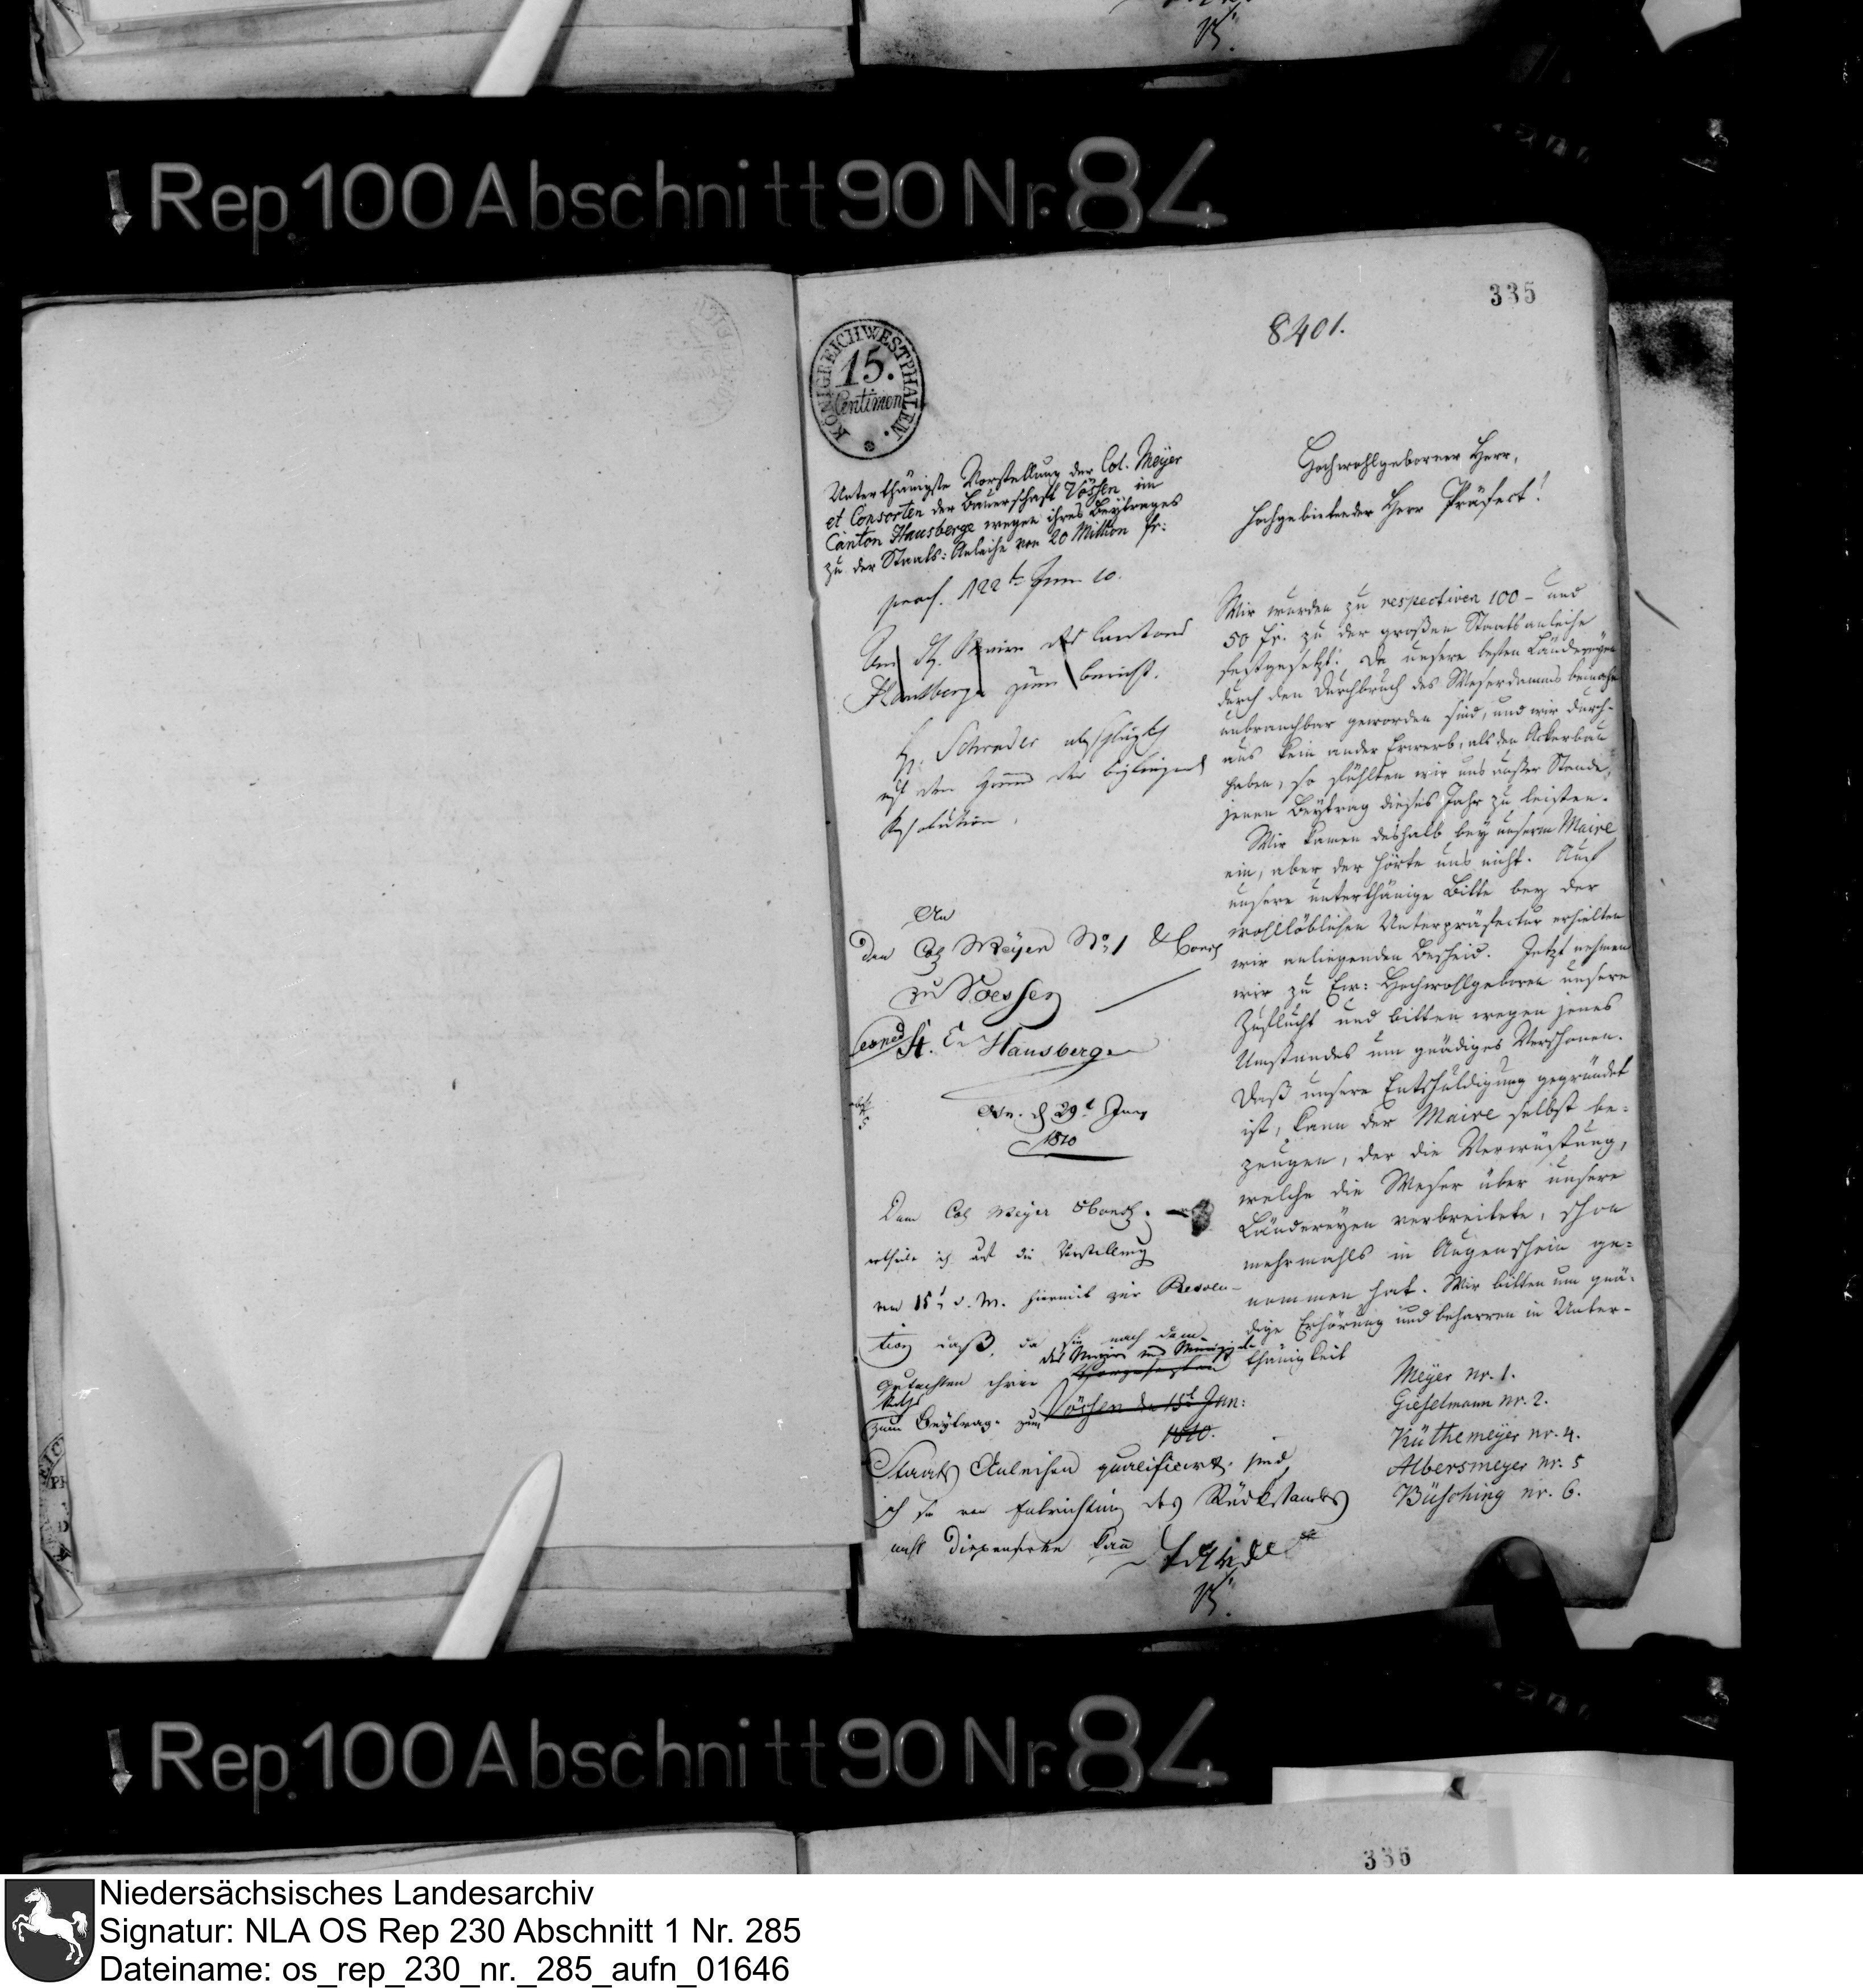 Rep. 100 Abschnitt 90 Nr. 84
335
8401.
KÖNIGREICH WESTPHALEN.
15.
Centimen
Unterthänigste Vorstellung der Col. Meyer
et Consorten der Bauerschaft Vößen im
Canton Hausberge wegen ihres Beytrages
zu der Staats-Anleihe von 20 Million fr:
praes. 22t Juni 10.
Hausberge zum Bericht.
H. Schrader
Resolution.
An
den Col. Meyer No 1 & Cons
zu Voessen
C. Hausberge
Osn. d 29t Juny
1810
Dem Col Meyer & Cons:
ertheile ich auf die Vorstellung
vom 15t d. M. hiermit zur Resolu-
tion daß, da sie nach dem
des Maire und Municipal
Gutachten ihres
Raths
zum Beytrage zum
Vößen den 15t Jun:
1810.
Staats Anleihen qualificirt sind
ich sie von Entrichtung des Rückstandes
nicht dispensiren kann
Hochwohlgeborner Herr,
Hochgebietender Herr Präfect!
Wir wurden zu respectiven 100 - und
50 fr. zu der großen Staatsanleihe
festgesetzt. Da unsere besten Ländereyen
durch den Durchbruch des Weserdamms beinahe
unbrauchbar geworden sind, und wir durch-
aus kein ander Erwerb, als den Ackerbau
haben, so fühlten wir uns außer Stande,
jenen Beytrag dieses Jahr zu leisten.
Wir kamen deshalb bey unserm Maire
ein, aber der hörte uns nicht. Auf
unsere unterthänige Bitte bey der
wohllöblichen Unterpräfectur erhielten
wir anliegenden Bescheid. Jetzt nehmen
wir zu Ew: Hochwohlgeboren unsere
Zuflucht und bitten wegen jenes
Umstandes um gnädiges Verschonen.
Daß unsere Entschuldigung gegründet
ist, kann der Maire selbst be-
zeugen, der die Verwüstung,
welche die Weser über unsere
Ländereyen verbreitete, schon
mehrmahls in Augenschein ge-
nommen hat. Wir bitten um gnä-
dige Erhörung und beharren in Unter-
thänigkeit
Meyer nr. 1.
Gieselmann nr. 2.
Küthemeyer nr. 4.
Albersmeyer nr. 5
Büsching nr. 6.
Rep. 100 Abschnitt 90 Nr. 84
336
Niedersächsisches Landesarchiv
Signatur: NLA OS Rep 230 Abschnitt 1 Nr. 285
Dateiname: os_rep_230_nr._285_aufn_01646